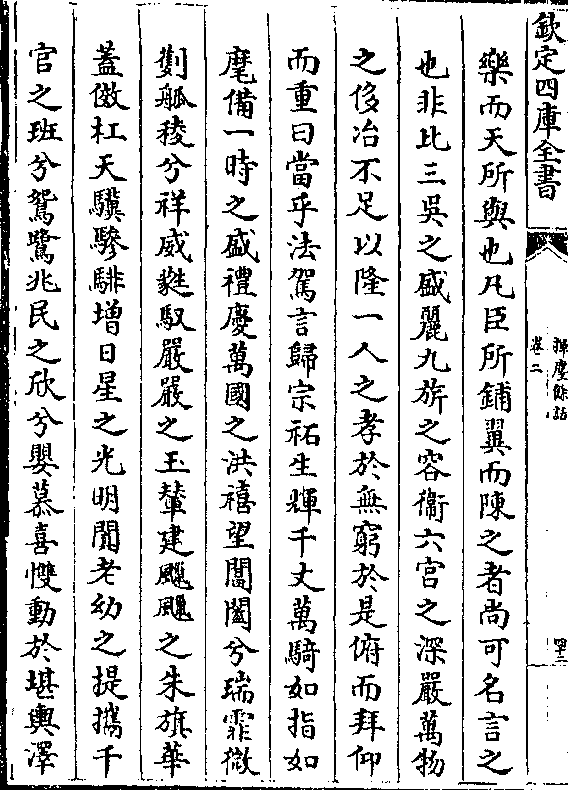 欽定四庫全書
揮麈餘話
卷二
樂而天所與也凡臣所鋪翼而陳之者尚可名言之
也非比三吳之盛麗九旂之容衞六宮之深嚴萬物
之侈冶不足以隆一人之孝於無窮於是俯而拜仰
而重曰當乎法駕言歸宗祏生輝千丈萬騎如指如
麾備一時之盛禮慶萬國之洪禧望閶闔兮瑞霏微
劃觚稜兮祥威蕤馭嚴嚴之玉輦建颺颺之朱旗華
蓋儆杠天驥驂騑增日星之光明閴老幼之提攜千
官之班兮鴛鷺兆民之欣兮嬰慕喜慢動於堪輿澤